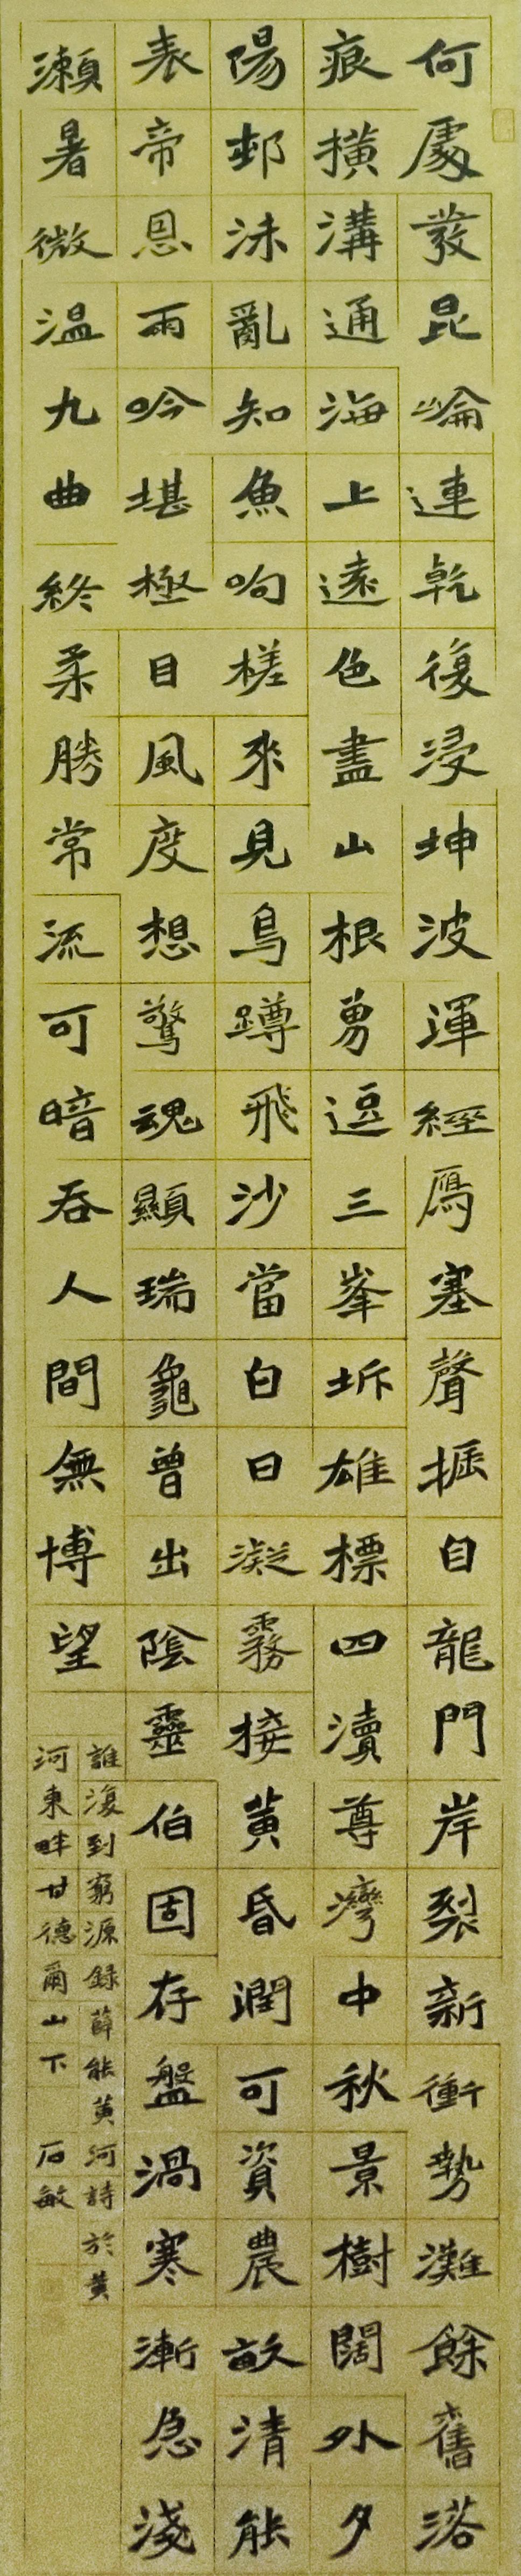 何處發昆崙連乾復浸坤波渾經鴈塞聲振自龍門岸裂新衝勢灘餘舊落
痕橫溝通海上遠色盡山根勇逗三峯坼雄標四瀆尊灣中秋景樹闊外夕
陽邨沫亂知魚呴槎來見鳥蹲飛沙當白日凝霧接黄昏潤可資農畝清能
表帝恩雨吟堪極目風度想驚魂顯瑞龜曾出陰靈伯固存盤渦寒漸急淺
瀨暑微温九曲終柔勝常流可暗吞人間無博望
誰復到窮源錄薛能黄河詩於黄
河東畔甘德爾山下 石敏